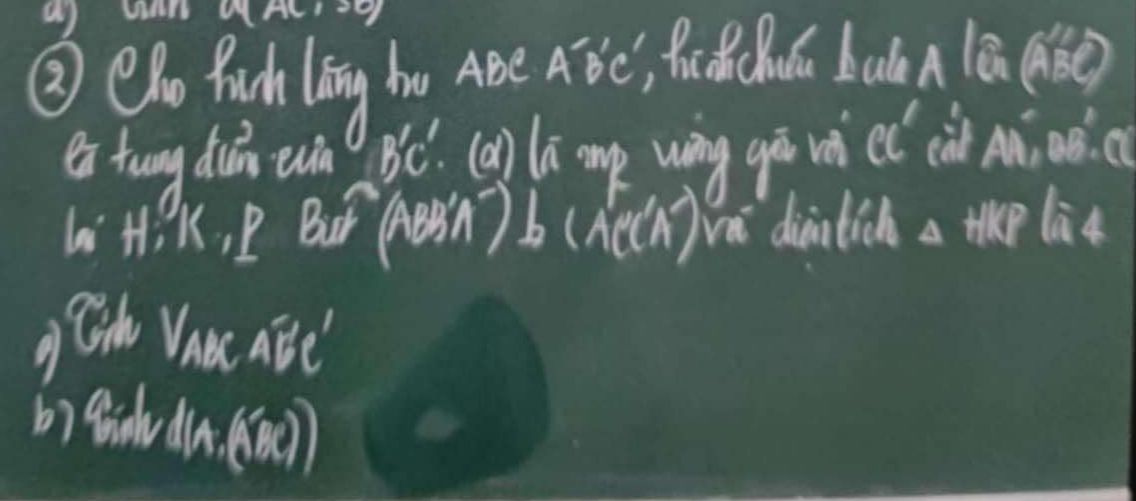 a) Tính d(AC, SB)
② Cho hình lăng trụ ABC A'B'C', hình chiếu của A lên (A'B'C')
là trung điểm của B'C'. (α) là mp vuông góc với CC' cắt AA', BB', CC'
tại H, K, P Biết (ABB'A') ⊥ (ACC'A') và diện tích △ HKP là 4
a) Tính VABC A'B'C'
b) Tính d(A, (A'BC))